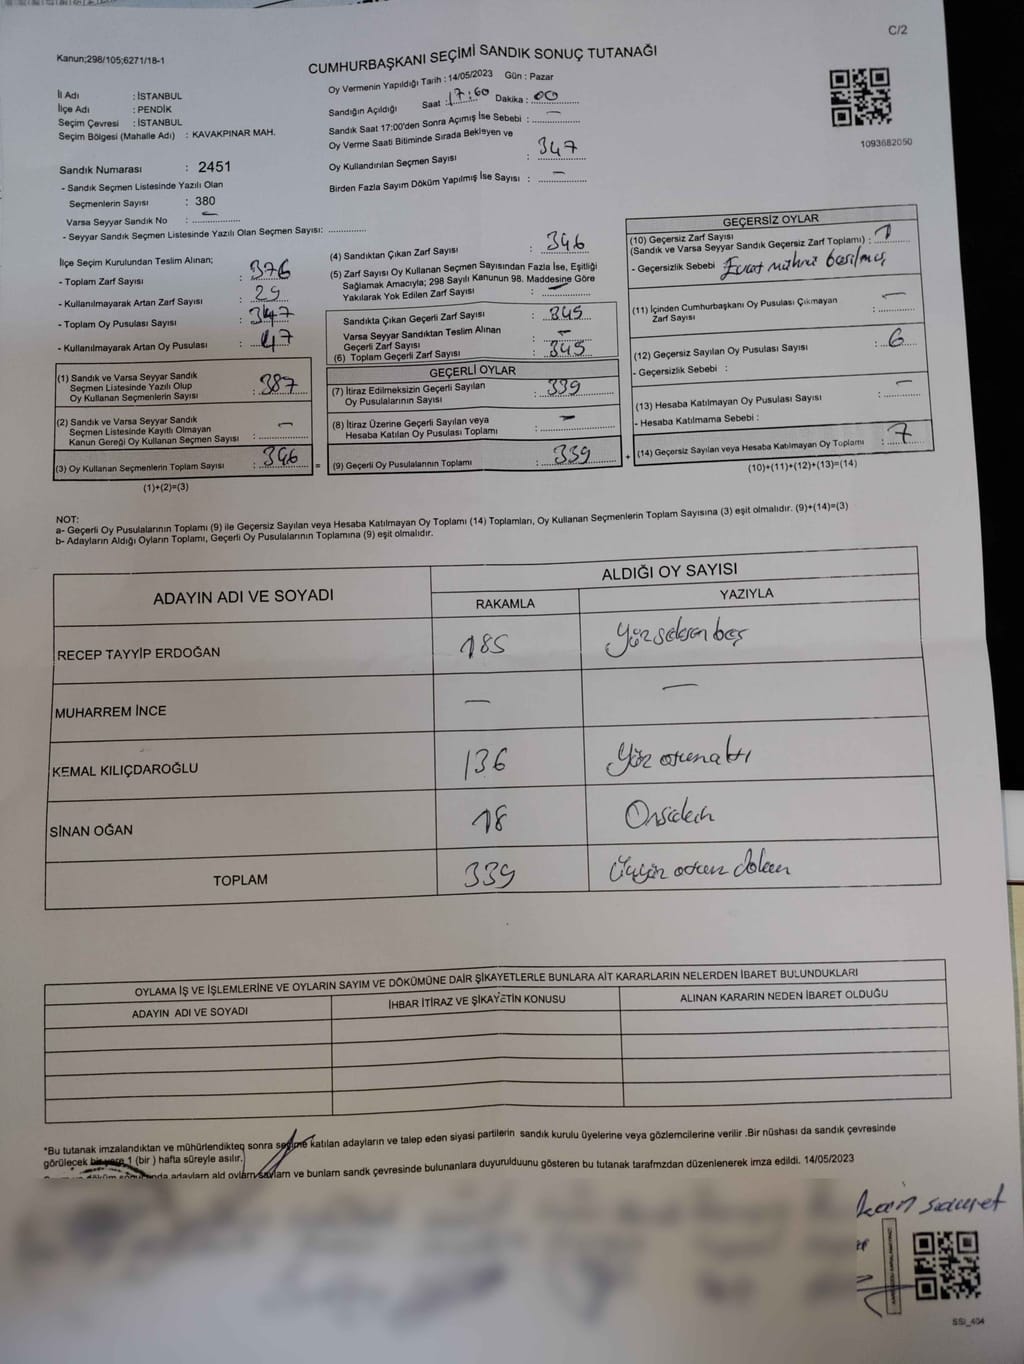 C/2
Kanun;298/105;6271/18-1
CUMHURBAŞKANI SEÇİMİ SANDIK SONUÇ TUTANAĞI
İl Adı : İSTANBUL
İlçe Adı : PENDİK
Seçim Çevresi : İSTANBUL
Seçim Bölgesi (Mahalle Adı) : KAVAKPINAR MAH.
Sandık Numarası : 2451
- Sandık Seçmen Listesinde Yazılı Olan
Seçmenlerin Sayısı : 380
Varsa Seyyar Sandık No : —
- Seyyar Sandık Seçmen Listesinde Yazılı Olan Seçmen Sayısı:
Oy Vermenin Yapıldığı Tarih : 14/05/2023 Gün : Pazar
Sandığın Açıldığı Saat : 17:00 Dakika : 00
Sandık Saat 17:00'den Sonra Açımış İse Sebebi : —
Oy Verme Saati Bitiminde Sırada Bekleyen ve
Oy Kullandırılan Seçmen Sayısı : 347
Birden Fazla Sayım Döküm Yapılmış İse Sayısı : —
1093682050
İlçe Seçim Kurulundan Teslim Alınan;
- Toplam Zarf Sayısı : 376
- Kullanılmayarak Artan Zarf Sayısı : 29
- Toplam Oy Pusulası Sayısı : 347
- Kullanılmayarak Artan Oy Pusulası : 47
(1) Sandık ve Varsa Seyyar Sandık
Seçmen Listesinde Yazılı Olup
Oy Kullanan Seçmenlerin Sayısı : 387
(2) Sandık ve Varsa Seyyar Sandık
Seçmen Listesinde Kayıtlı Olmayan
Kanun Gereği Oy Kullanan Seçmen Sayısı : —
(3) Oy Kullanan Seçmenlerin Toplam Sayısı : 346 =
(1)+(2)=(3)
(4) Sandıktan Çıkan Zarf Sayısı : 346
(5) Zarf Sayısı Oy Kullanan Seçmen Sayısından Fazla İse, Eşitliği
Sağlamak Amacıyla; 298 Sayılı Kanunun 98. Maddesine Göre
Yakılarak Yok Edilen Zarf Sayısı : —
Sandıkta Çıkan Geçerli Zarf Sayısı : 345
Varsa Seyyar Sandıktan Teslim Alınan
Geçerli Zarf Sayısı : —
(6) Toplam Geçerli Zarf Sayısı : 345
GEÇERLİ OYLAR
(7) İtiraz Edilmeksizin Geçerli Sayılan
Oy Pusulalarının Sayısı : 339
(8) İtiraz Üzerine Geçerli Sayılan veya
Hesaba Katılan Oy Pusulası Toplamı : —
(9) Geçerli Oy Pusulalarının Toplamı : 339 +
GEÇERSİZ OYLAR
(10) Geçersiz Zarf Sayısı
(Sandık ve Varsa Seyyar Sandık Geçersiz Zarf Toplamı) : 1
- Geçersizlik Sebebi : Evet mührü basılmış
(11) İçinden Cumhurbaşkanı Oy Pusulası Çıkmayan
Zarf Sayısı : —
(12) Geçersiz Sayılan Oy Pusulası Sayısı : 6
- Geçersizlik Sebebi :
(13) Hesaba Katılmayan Oy Pusulası Sayısı : —
- Hesaba Katılmama Sebebi :
(14) Geçersiz Sayılan veya Hesaba Katılmayan Oy Toplamı : 7
(10)+(11)+(12)+(13)=(14)
NOT:
a- Geçerli Oy Pusulalarının Toplamı (9) ile Geçersiz Sayılan veya Hesaba Katılmayan Oy Toplamı (14) Toplamları, Oy Kullanan Seçmenlerin Toplam Sayısına (3) eşit olmalıdır. (9)+(14)=(3)
b- Adayların Aldığı Oyların Toplamı, Geçerli Oy Pusulalarının Toplamına (9) eşit olmalıdır.
ADAYIN ADI VE SOYADI
ALDIĞI OY SAYISI
RAKAMLA YAZIYLA
RECEP TAYYİP ERDOĞAN 185 Yüz seksen beş
MUHARREM İNCE — —
KEMAL KILIÇDAROĞLU 136 Yüz otuz altı
SİNAN OĞAN 18 Onsekiz
TOPLAM 339 Üçyüz otuz dokuz
OYLAMA İŞ VE İŞLEMLERİNE VE OYLARIN SAYIM VE DÖKÜMÜNE DAİR ŞİKAYETLERLE BUNLARA AİT KARARLARIN NELERDEN İBARET BULUNDUKLARI
ADAYIN ADI VE SOYADI İHBAR İTİRAZ VE ŞİKAYETİN KONUSU ALINAN KARARIN NEDEN İBARET OLDUĞU
*Bu tutanak imzalandıktan ve mühürlendikten sonra seçime katılan adayların ve talep eden siyasi partilerin sandık kurulu üyelerine veya gözlemcilerine verilir .Bir nüshası da sandık çevresinde
görülecek bir yere 1 (bir ) hafta süreyle asılır.
adayların ald oyların sayılarn ve bunlarn sandk çevresinde bulunanlara duyurulduunu gösteren bu tutanak tarafmzdan düzenlenerek imza edildi. 14/05/2023
SSI_404